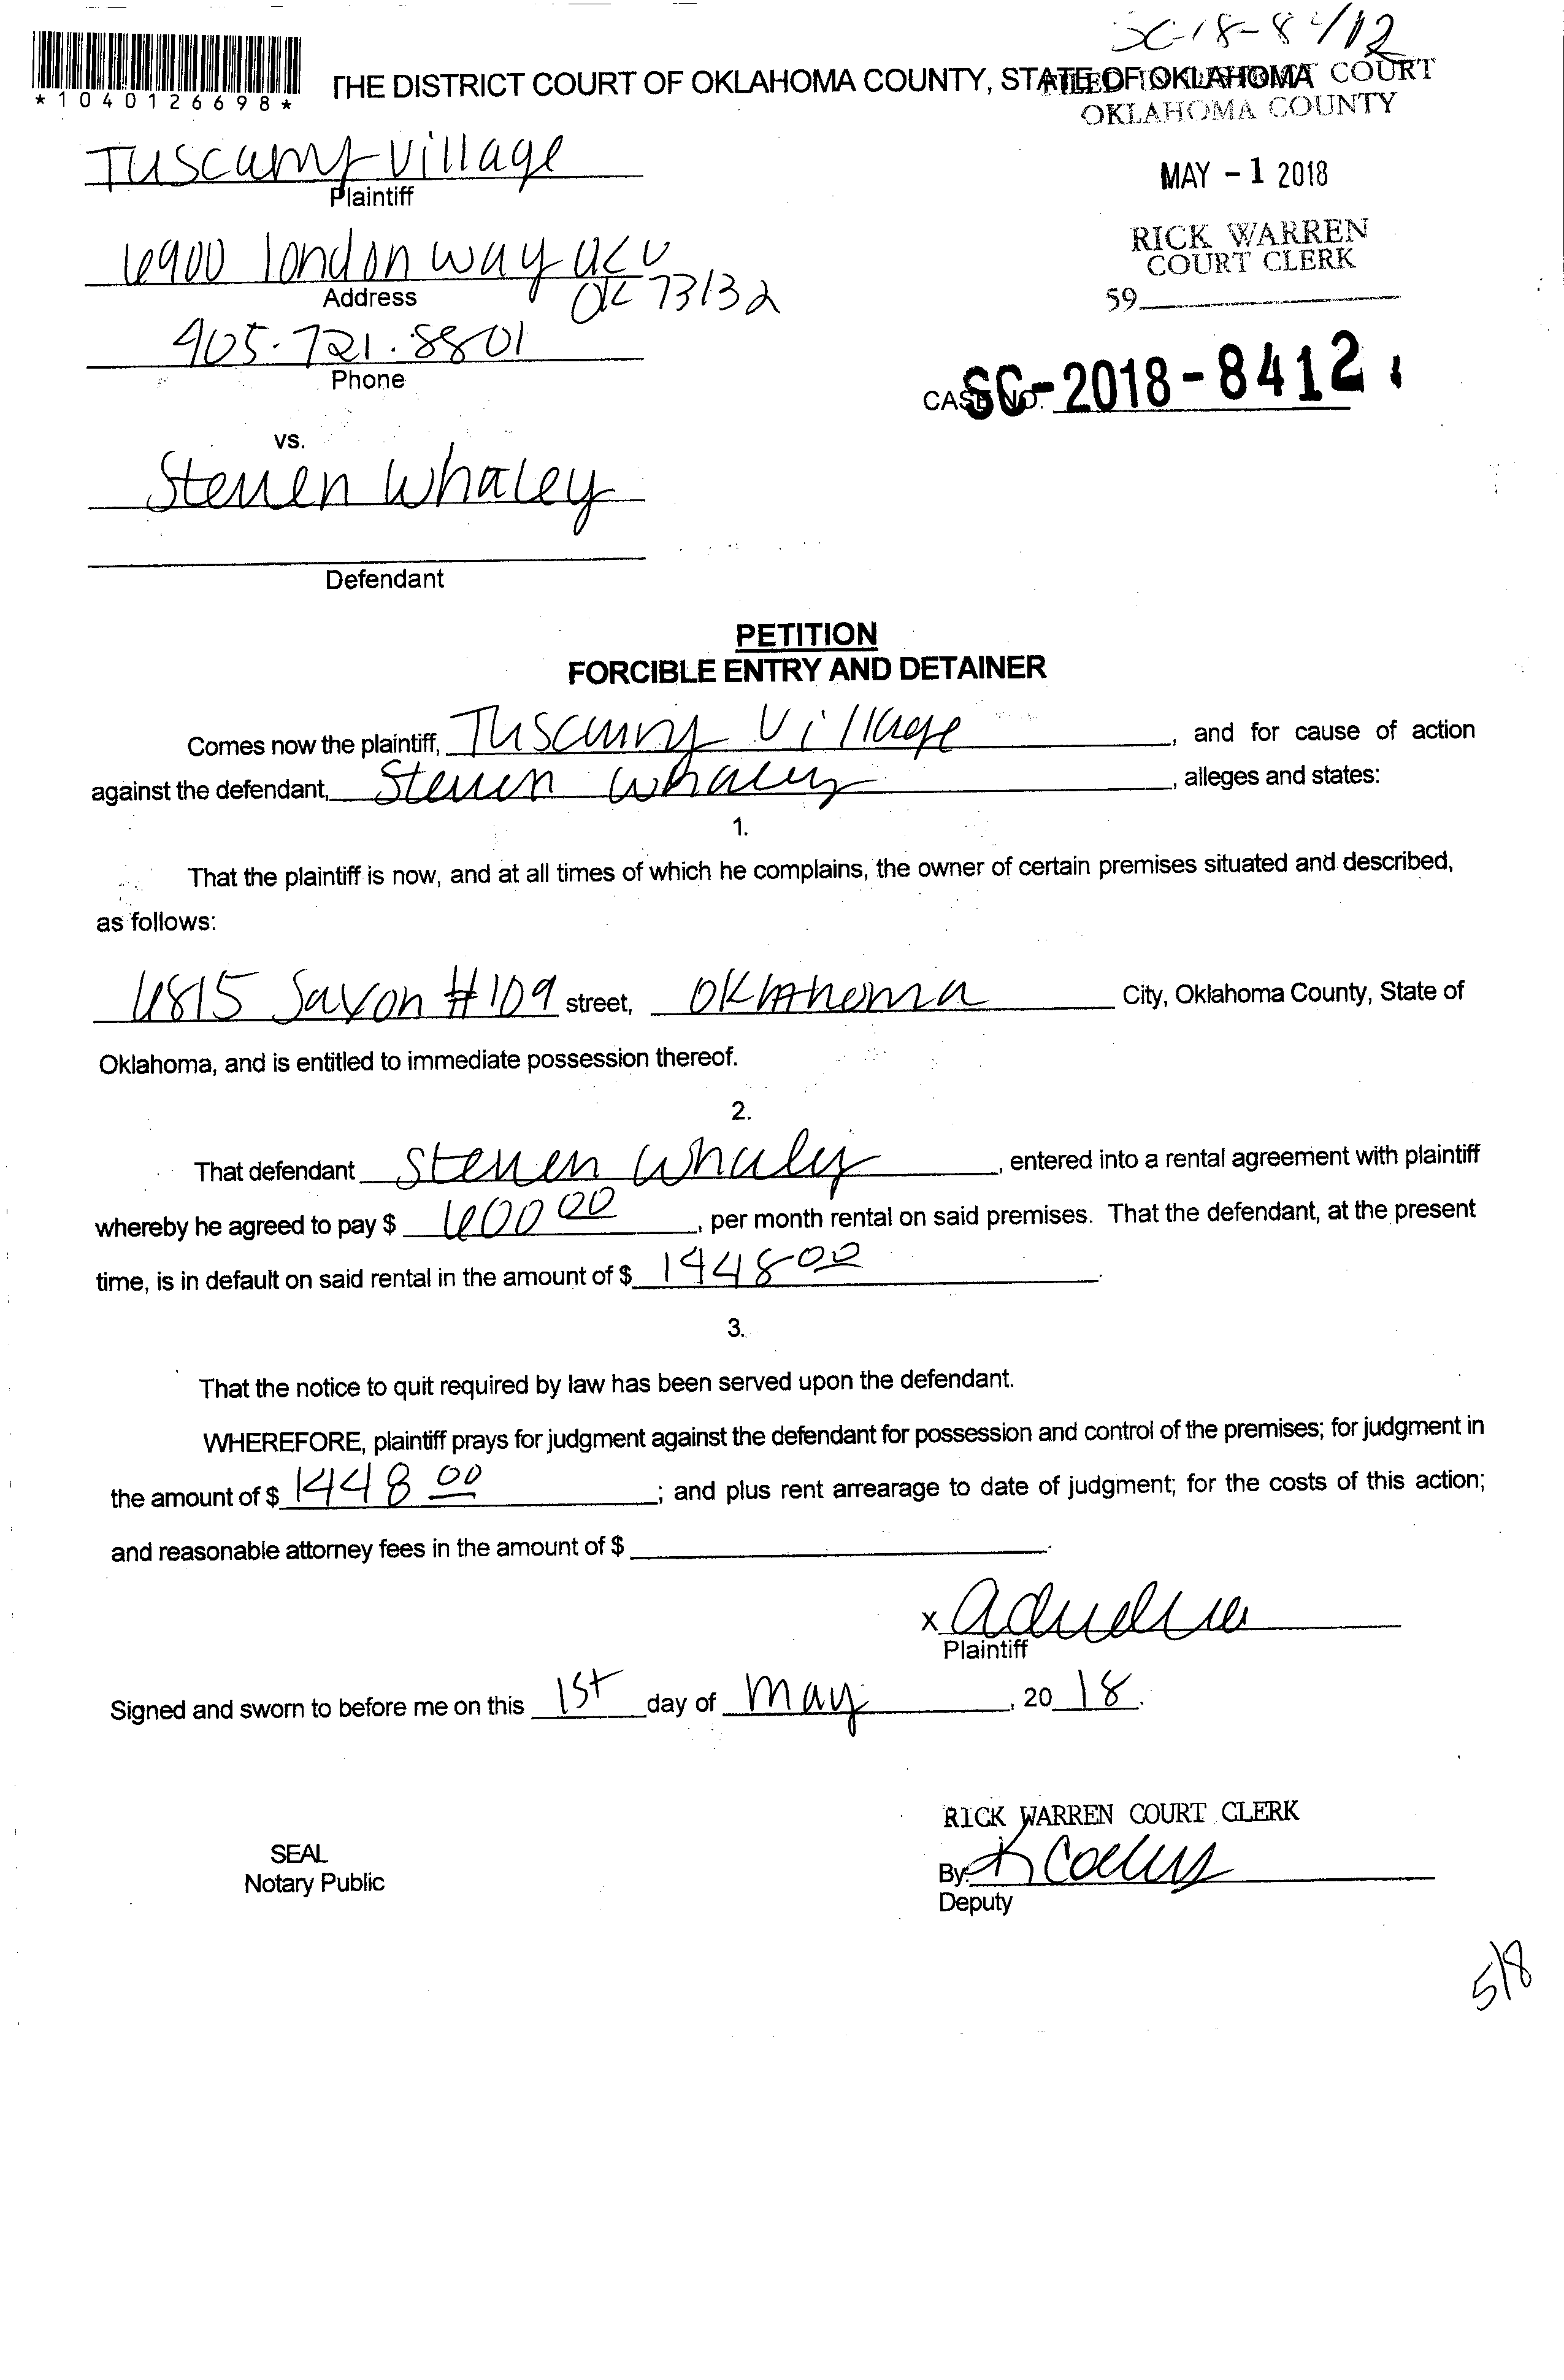 SC-18-8412
*1040126698*
THE DISTRICT COURT OF OKLAHOMA COUNTY, STATE OF OKLAHOMA
FILED IN DISTRICT COURT
OKLAHOMA COUNTY
Tuscany Village
Plaintiff
MAY -1 2018
6900 london way OKC
OK 73132
Address
RICK WARREN
COURT CLERK
59
405.721.8801
Phone
CASE NO. SC-2018-8412
vs.
Steven Whaley
Defendant
PETITION
FORCIBLE ENTRY AND DETAINER
Comes now the plaintiff, Tuscany Village, and for cause of action
against the defendant, Steven Whaley, alleges and states:
1.
That the plaintiff is now, and at all times of which he complains, the owner of certain premises situated and described,
as follows:
6815 Saxon #109 street, Oklahoma City, Oklahoma County, State of
Oklahoma, and is entitled to immediate possession thereof.
2.
That defendant Steven Whaley, entered into a rental agreement with plaintiff
whereby he agreed to pay $ 600 00, per month rental on said premises. That the defendant, at the present
time, is in default on said rental in the amount of $ 1448 00.
3.
That the notice to quit required by law has been served upon the defendant.
WHEREFORE, plaintiff prays for judgment against the defendant for possession and control of the premises; for judgment in
the amount of $ 1448 00; and plus rent arrearage to date of judgment; for the costs of this action;
and reasonable attorney fees in the amount of $ .
x
Plaintiff
Signed and sworn to before me on this 1st day of May, 20 18.
RICK WARREN COURT CLERK
SEAL
Notary Public
By:
Deputy
5/8